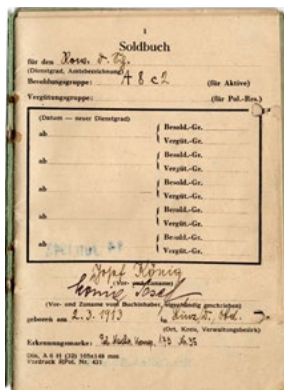 1
Soldbuch
für den Rom. d. Sch.
(Dienstgrad, Amtsbezeichnung)
Besoldungsgruppe: A 8 c 2 (für Aktive)
Vergütungsgruppe: (für Pol.-Res.)
(Datum — neuer Dienstgrad)
ab Besold.-Gr.
Vergüt.-Gr.
ab Besold.-Gr.
Vergüt.-Gr.
ab Besold.-Gr.
Vergüt.-Gr.
ab Besold.-Gr.
Vergüt.-Gr.
ab Besold.-Gr.
Vergüt.-Gr.
Josef König
(Vor- und Zuname)
König Josef
(Vor- und Zuname vom Buchinhaber, eigenhändig geschrieben)
geboren am 2.3.1913 in Linz
(Ort, Kreis, Verwaltungsbezirk)
Erkennungsmarke:
Din. A 6 H (32) 105x148 mm
Vordruck RPol. Nr. 431